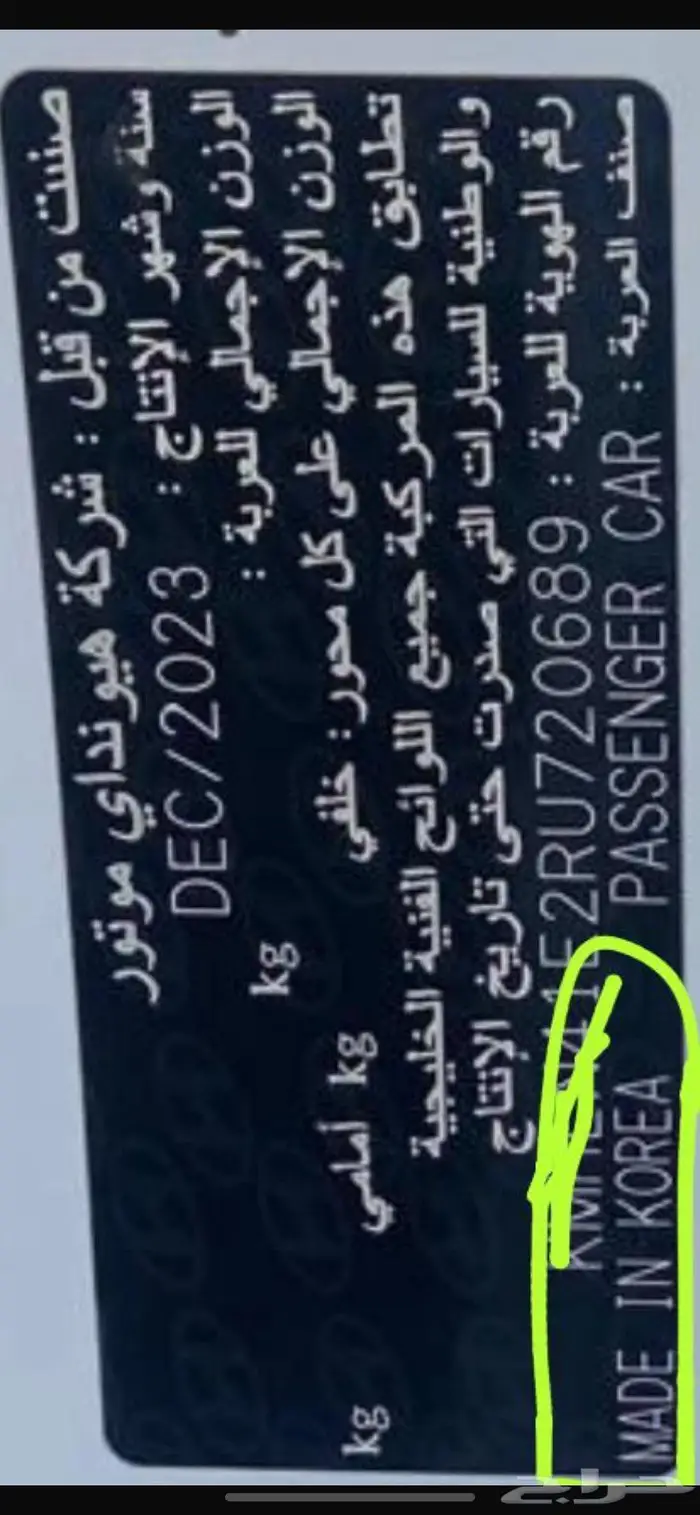 صنعت من قبل : شركة هيونداي موتور
سنة وشهر الإنتاج : DEC/2023
الوزن الإجمالي للعربة : kg
الوزن الإجمالي على كل محور: خلفي kg أمامي kg
تطابق هذه المركبة جميع اللوائح الفنية الخليجية
والوطنية للسيارات التي صدرت حتى تاريخ الإنتاج
رقم الهوية للعربة : 2RU720689
صنف العربة : PASSENGER CAR MADE IN KOREA
حراج